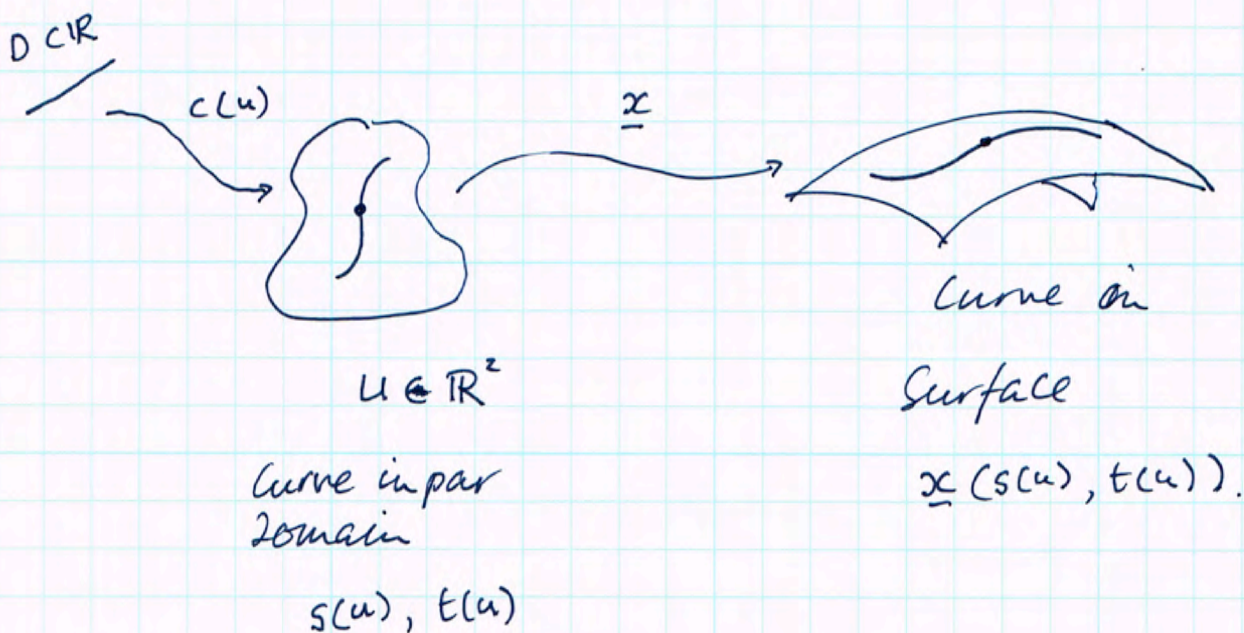 D ⊂ ℝ
c(u)
x
U ∈ ℝ²
Curve in par
domain
s(u), t(u)
Curve on
Surface
x(s(u), t(u)).